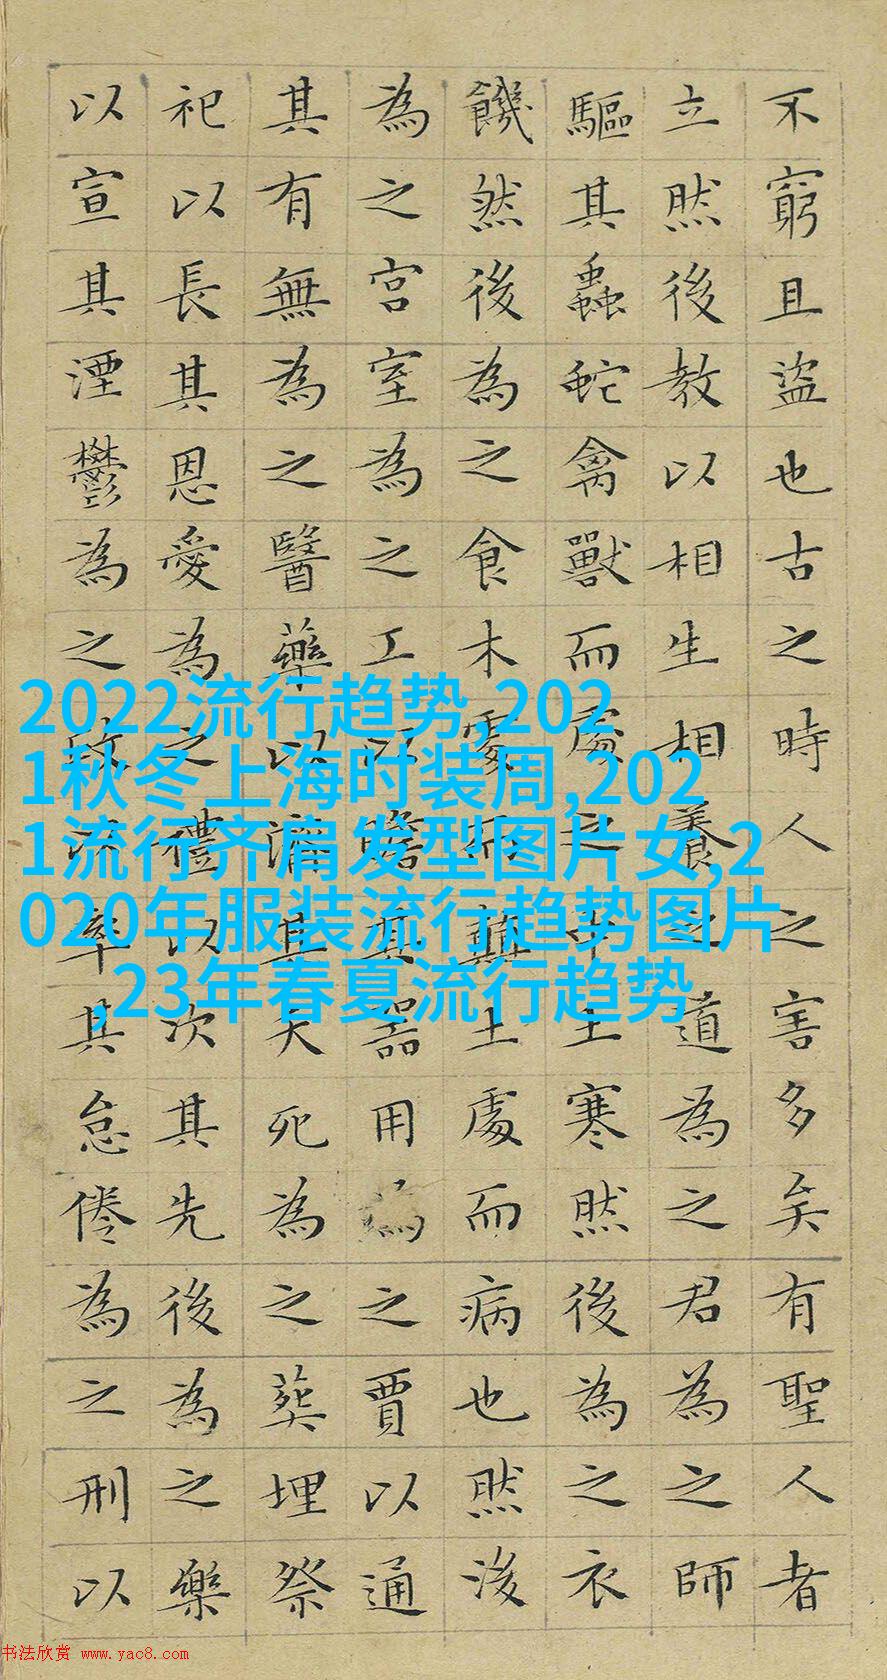 不窮且盜也古之時人之害多矣有聖人者
立然後教以相生相養之道為之君為之師
驅其蟲蛇禽獸而處之中土寒然後為之衣
饑然後為之食木處而顛土處而病也然後
為之宮室為之工以贍其器用為之賈以通
其有無為之醫藥以濟其夭死為之葬埋祭
祀以長其恩愛為之禮以次其先後為之樂
以宣其湮鬱為之政以率其怠倦為之刑以
2022流行趋势,202
1秋冬上海时装周,202
1流行齐肩发型图片女,2
020年服装流行趋势图片
,23年春夏流行趋势
书法欣赏 www.yac8.com